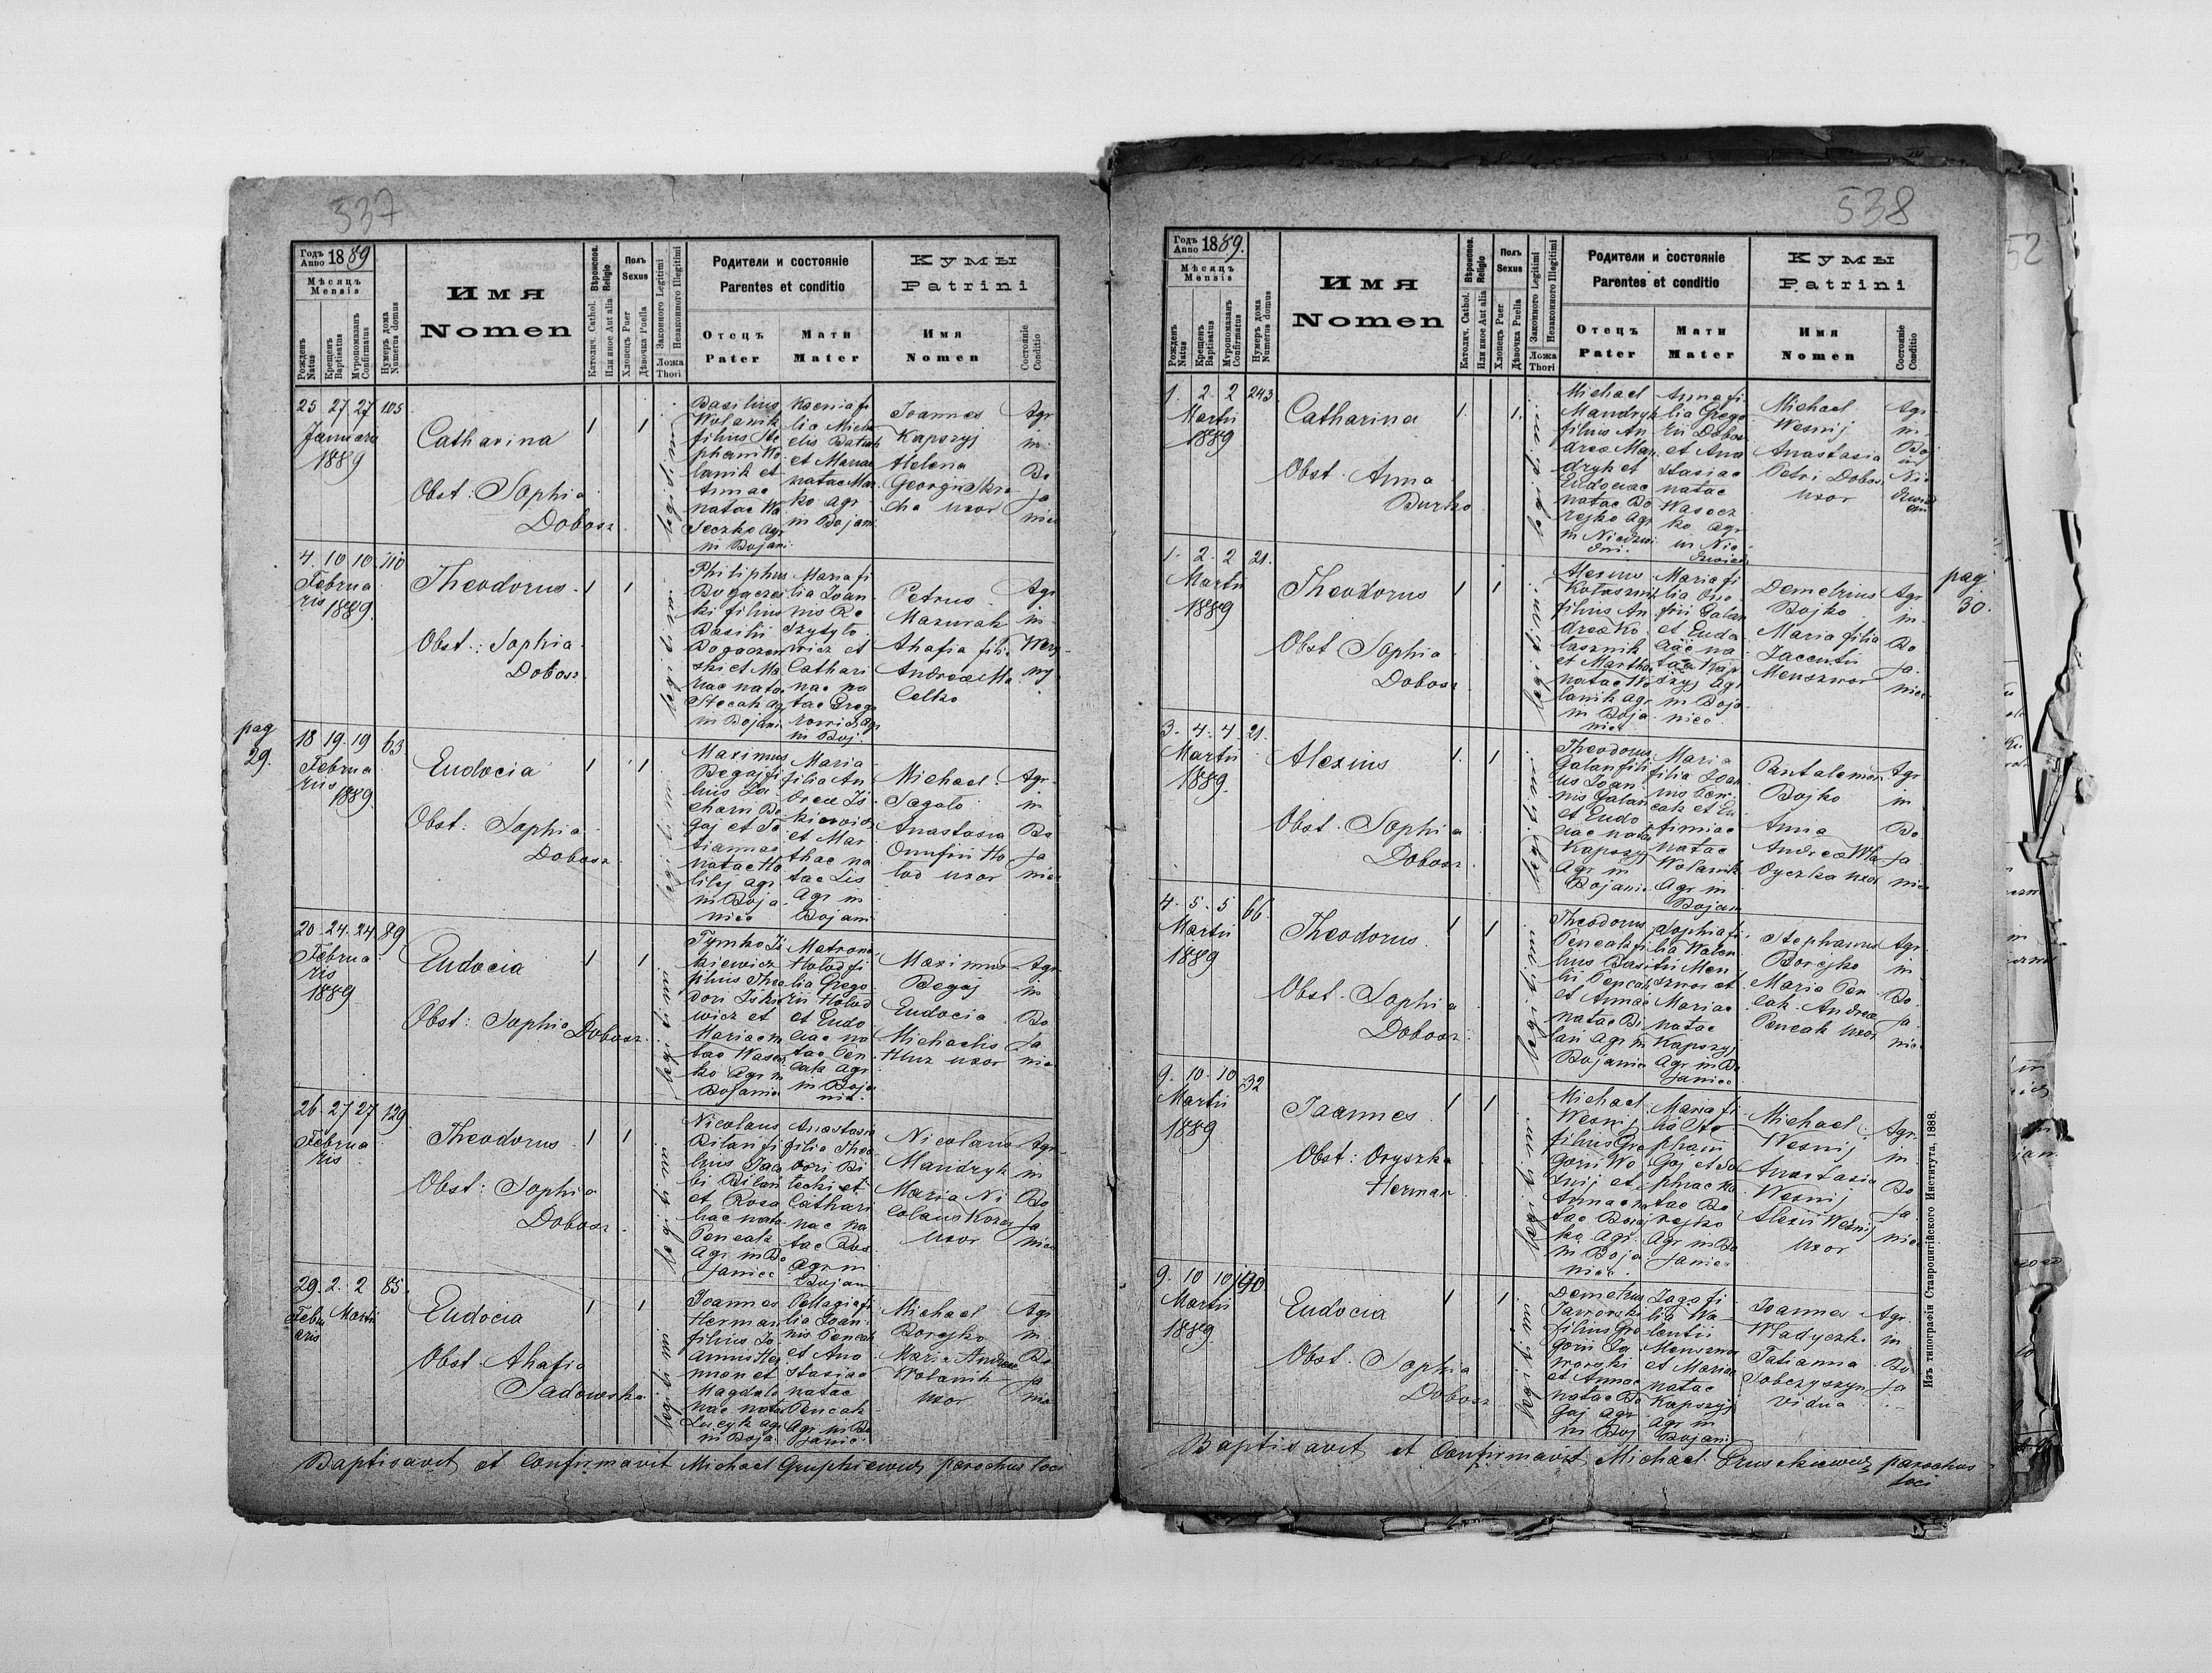 337
Годъ
Anno 1889
Мѣсяцъ
Mensis
Рожденъ
Natus
Крещенъ
Baptisatus
Мѵропомазанъ
Confirmatus
Нумеръ дома
Numerus domus
Имя
Nomen
Вѣроиспов.
Religio
Католич. Cathol.
Или иное Aut alia
Полъ
Sexus
Хлопецъ Puer
Дѣвочка Puella
Законного Legitimi
Незаконного Illegitimi
Ложа
Thori
Родители и состояніе
Parentes et conditio
Отецъ
Pater
Мати
Mater
Кумы
Patrini
Имя
Nomen
Состояніе
Conditio
25 27 27 105
Januarii
1889
Catharina
Obst: Sophia
Dobosz
legitimi
Basilius
Wolanik
filius Ste
phani Wo
lanik et
Annae
natae Wa
seczko agr
in Bojani
Ksenia fi
lia Micha
elis Batiuk
et Mariae
natae Mar
ko agr
in Bojani
Joannes
Kapszyj
Helena
Georgii Skro
cha uxor
Agr
in
Bo
ja
niec
4 10 10 110
Februa
ris 1889
Theodorus
Obst: Sophia
Dobosz
legitimi
Philiphus
Bogaczew
ki filius
Basilii
Bogaczew
ski et Ma
riae natae
Stecak agr
in Bojani
Maria fi
lia Joan
nis Re
szytyło
wicz et
Cathari
nae na
tae Grego
rowicz agr
in Boj.
Petrus
Mazurak
Ahafia fili
Andreae Ma
Celko
Agr
in
pag
29.
18 19 19 63
Februa
rius 1889
Eudocia
Obst: Sophia
Dobosz
legitimi
Maximus
Begaj fi
lius Za
charii Be
gaj et Ta
tiannae
natae Ho
lilej agr
in Boja
niec
Maria
filia An
dreae Is
kiewicz
et Mar
thae na
tae Lis
Agr in
Bojani
Michael
Sagalo
Anastasia
Onufrii Ho
lod uxor
Agr
in
Bo
ja
niec
20 24 24 89
Februa
ris
1889
Eudocia
Obst: Sophia Dobosz
legitimi
Tymko Is
kiewicz
filius Theo
dori Iskie
wicz et
Mariae na
tae Wasecz
ko Agr in
Bojaniec
Matrona
Holod fi
lia Grego
rii Holod
et Eudo
ciae na
tae Pen
cak agr
in Boja
nie.
Maximus
Begaj
Eudocia
Michaelis
Hluz uxor
Agr
in
Bo
ja
niec
26 27 27 129
Februa
ris
Theodorus
Obst: Sophia
Dobosz
legitimi
Nicolaus
Bilan fi
lius Jaco
bi Bilan
et Rosa
liae nata
Pencak
Agr in Bo
janiec
Anastasia
filia Theo
dori Bi
lecki et
Cathari
nae na
tae Bos
agr in
Bojan
Nicolaus
Mandryk
Maria Ni
colaus Kozar
uxor
Agr
in
Bo
ja
niec
29 2 2 85
Febru Martii
aris
Eudocia
Obst. Ahafia
Sadowska
legitimi
Joannes
Herman
filius Jo
annis Her
man et
Magdale
nae natae
Lucyk agr
in Boja
Pellagia fi
lia Joan
nis Pencak
et Ana
stasiae
natae
Pencak
Agr in Bo
janie.
Michael
Borejko
Maria Andreae
Wolanik
uxor
Agr
in
Bo
ja
nie
Baptisavit et Confirmavit Michael Gruszkiewicz parochus loci
538
Годъ
Anno 1889.
Мѣсяцъ
Mensis
Рожденъ
Natus
Крещенъ
Baptisatus
Мѵропомазанъ
Confirmatus
Нумеръ дома
Numerus domus
Имя
Nomen
Вѣроиспов.
Religio
Католич. Cathol.
Или иное Aut alia
Полъ
Sexus
Хлопецъ Puer
Дѣвочка Puella
Законного Legitimi
Незаконного Illegitimi
Ложа
Thori
Родители и состояніе
Parentes et conditio
Отецъ
Pater
Мати
Mater
Кумы
Patrini
Имя
Nomen
Состояніе
Conditio
1. 2. 2 243
Martii
1889
Catharina
Obst. Anna
Burko
legitimi
Michael
Mandryk
filius An
dreae Man
dryk et
Eudociae
natae Bo
rejko Agr
in Niedzwi
dni.
Anna fi
lia Grego
rii Dobosz
et Ana
stasiae
natae
Wasecz
ko agr
in Nie
Michael
Wesnij
Anastasia
Petri Dobosz
uxor
Agr
in
Bo
1. 2. 2 21.
Martii
1889
Theodorus
Obst Sophia
Dobosz
legitimi
Alexius
Kolasznik
filius An
dreae Ko
lasznik
et Marthae
natae Wo
lanik agr
in Boja
niec
Maria fi
lia Ono
frii Galan
et Eudo
ciae na
tae Kap
szyj Agr
in Boja
niec
Demetrius
Bojko
Maria filia
Jaccentii
Menszwor
Agr
in
Bo
ja
niec
pag
30.
3. 4. 4. 21.
Martii
1889.
Alexius
Obst. Sophia
Dobosz
legitimi
Theodorus
Galan fili
us Joan
nis Galan
et Eudo
ciae natae
Kapszyj
Agr in
Bojanie
Maria
filia Joan
nis Pen
cak et Eu
fimiae
natae
Wolanik
Agr in
Bojani
Pantalemon
Bojko
Anna
Andreae Wla
dyczka uxor
Agr
in
Bo
ja
niec
4. 5. 5 66.
Martii
1889
Theodorus.
Obst. Sophia
Dobosz
legitimi
Theodorus
Pencak fi
lius Basi
lii Pencak
et Annae
natae Bi
lan Agr in
Bojanie
Sophia fi
lia Walen
tii Men
szwor et
Mariae
natae
Kapszyj
Agr in Bo
janiec
Stephanus
Borejko
Maria Pen
cak Andreae
Pencak uxor
Agr
in
Bo
ja
niec
9. 10. 10 32
Martii
1889
Joannes
Obst: Oryszka
Herman
legitimi
Michael
Wesnij
filius Gre
gorii We
snij et
Annae na
tae Borej
ko Agr.
in Boja
niec
Maria fi
lia Ste
phani
Gaj et So
phiae na
tae Bo
rejko
Agr in Bo
janiec
Michael
Wesnij
Anastasia
Wesnij
Alexii Wesnij
uxor
Agr.
in
Bo
ja
niec
9. 10 10 190
Martii
1889.
Eudocia
Obst. Sophia
Dobosz
legitimi
Demetrius
Jaworski
filius Gre
gorii Ja
worski
et Annae
natae Be
gaj agr
in Boj
Zagafi
lia Wa
lentii
Menszwor
et Mariae
natae
Kapszyj
Agr in
Bojani
Joannes
Wladyczk.
Tatianna
Sobczyszyn
vidua
Agr.
in
Bo
ja
Baptisavit et Confirmavit Michael Gruszkiewicz parochus
loci
Изъ типографіи Ставропигійского Института, 1888.
52